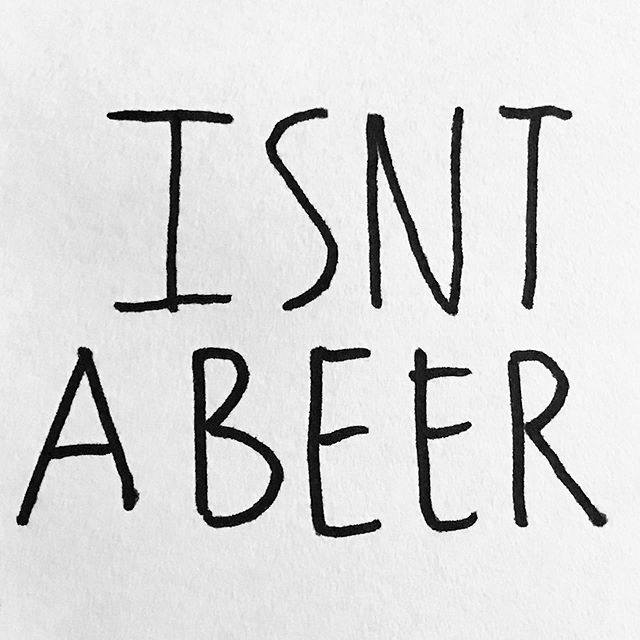 ISNT
A BEER